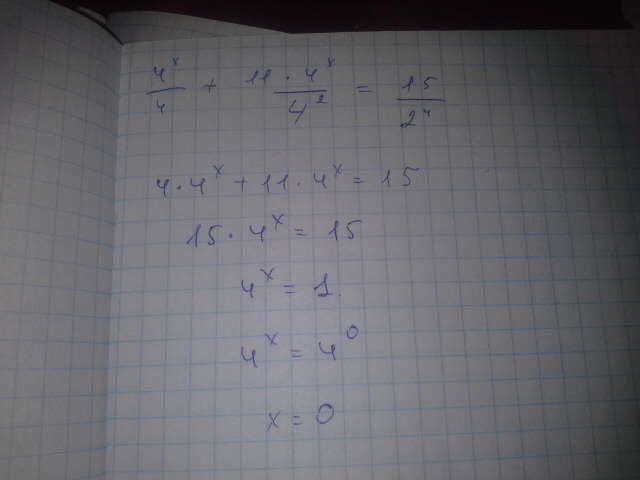 4^x/4 + 11 · 4^x/4^2 = 15/2^4
4 · 4^x + 11 · 4^x = 15
15 · 4^x = 15
4^x = 1.
4^x = 4^0
x = 0